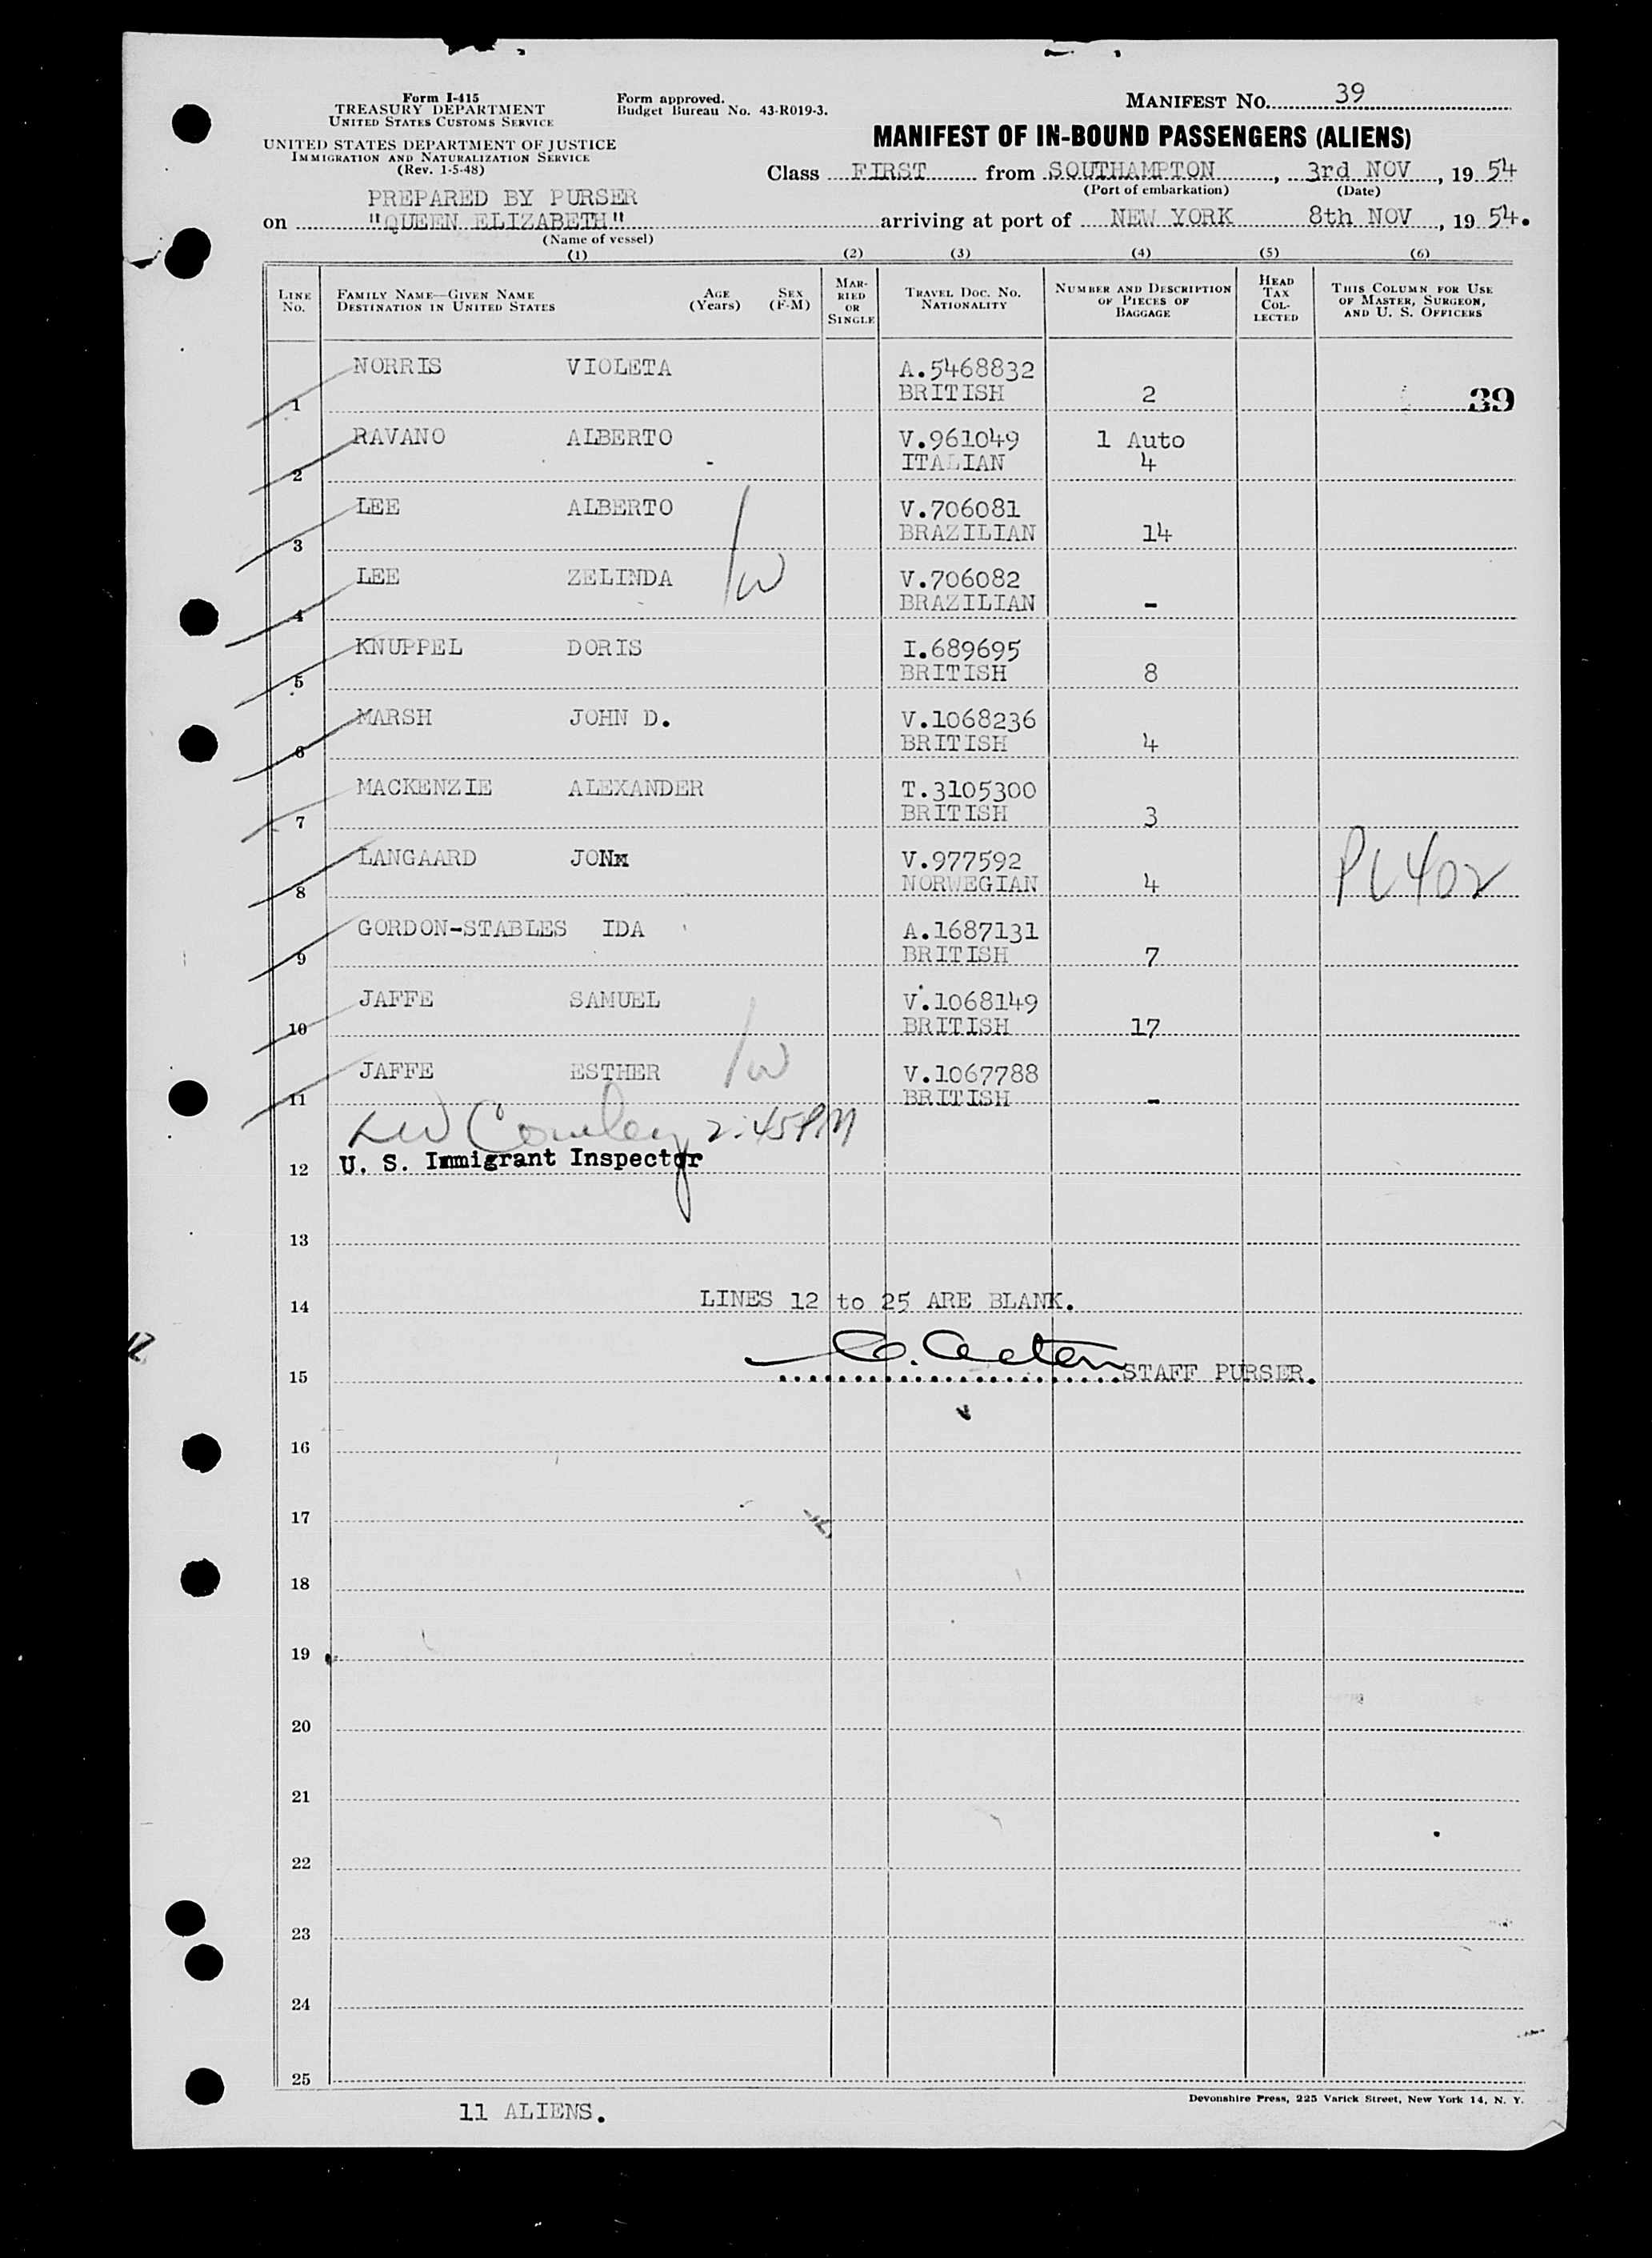 Form I-415
TREASURY DEPARTMENT
UNITED STATES CUSTOMS SERVICE
UNITED STATES DEPARTMENT OF JUSTICE
IMMIGRATION AND NATURALIZATION SERVICE
(Rev. 1-5-48)
Form approved.
Budget Bureau No. 43-R019-3.
MANIFEST NO. 39
MANIFEST OF IN-BOUND PASSENGERS (ALIENS)
Class FIRST from SOUTHAMPTON, 3rd NOV, 19 54
(Port of embarkation) (Date)
PREPARED BY PURSER
on "QUEEN ELIZABETH" arriving at port of NEW YORK 8th NOV, 19 54.
(Name of vessel)
(1) (2) (3) (4) (5) (6)
LINE NO. FAMILY NAME—GIVEN NAME DESTINATION IN UNITED STATES AGE (Years) SEX (F-M) MARRIED OR SINGLE TRAVEL DOC. NO. NATIONALITY NUMBER AND DESCRIPTION OF PIECES OF BAGGAGE HEAD TAX COLLECTED THIS COLUMN FOR USE OF MASTER, SURGEON, AND U. S. OFFICERS
NORRIS VIOLETA A.5468832
1 BRITISH 2 39
RAVANO ALBERTO V.961049 1 Auto
2 ITALIAN 4
LEE ALBERTO V.706081
3 BRAZILIAN 14
LEE ZELINDA W V.706082
4 BRAZILIAN -
KNUPPEL DORIS I.689695
5 BRITISH 8
MARSH JOHN D. V.1068236
6 BRITISH 4
MACKENZIE ALEXANDER T.3105300
7 BRITISH 3
LANGAARD JONx V.977592
8 NORWEGIAN 4 PL402
GORDON-STABLES IDA A.1687131
9 BRITISH 7
JAFFE SAMUEL V.1068149
10 BRITISH 17
JAFFE ESTHER W V.1067788
11 BRITISH -
2:45PM
12 U. S. Immigrant Inspector
13
14 LINES 12 to 25 ARE BLANK.
15 STAFF PURSER.
16
17
18
19
20
21
22
23
24
25
Devonshire Press, 225 Varick Street, New York 14, N. Y.
11 ALIENS.